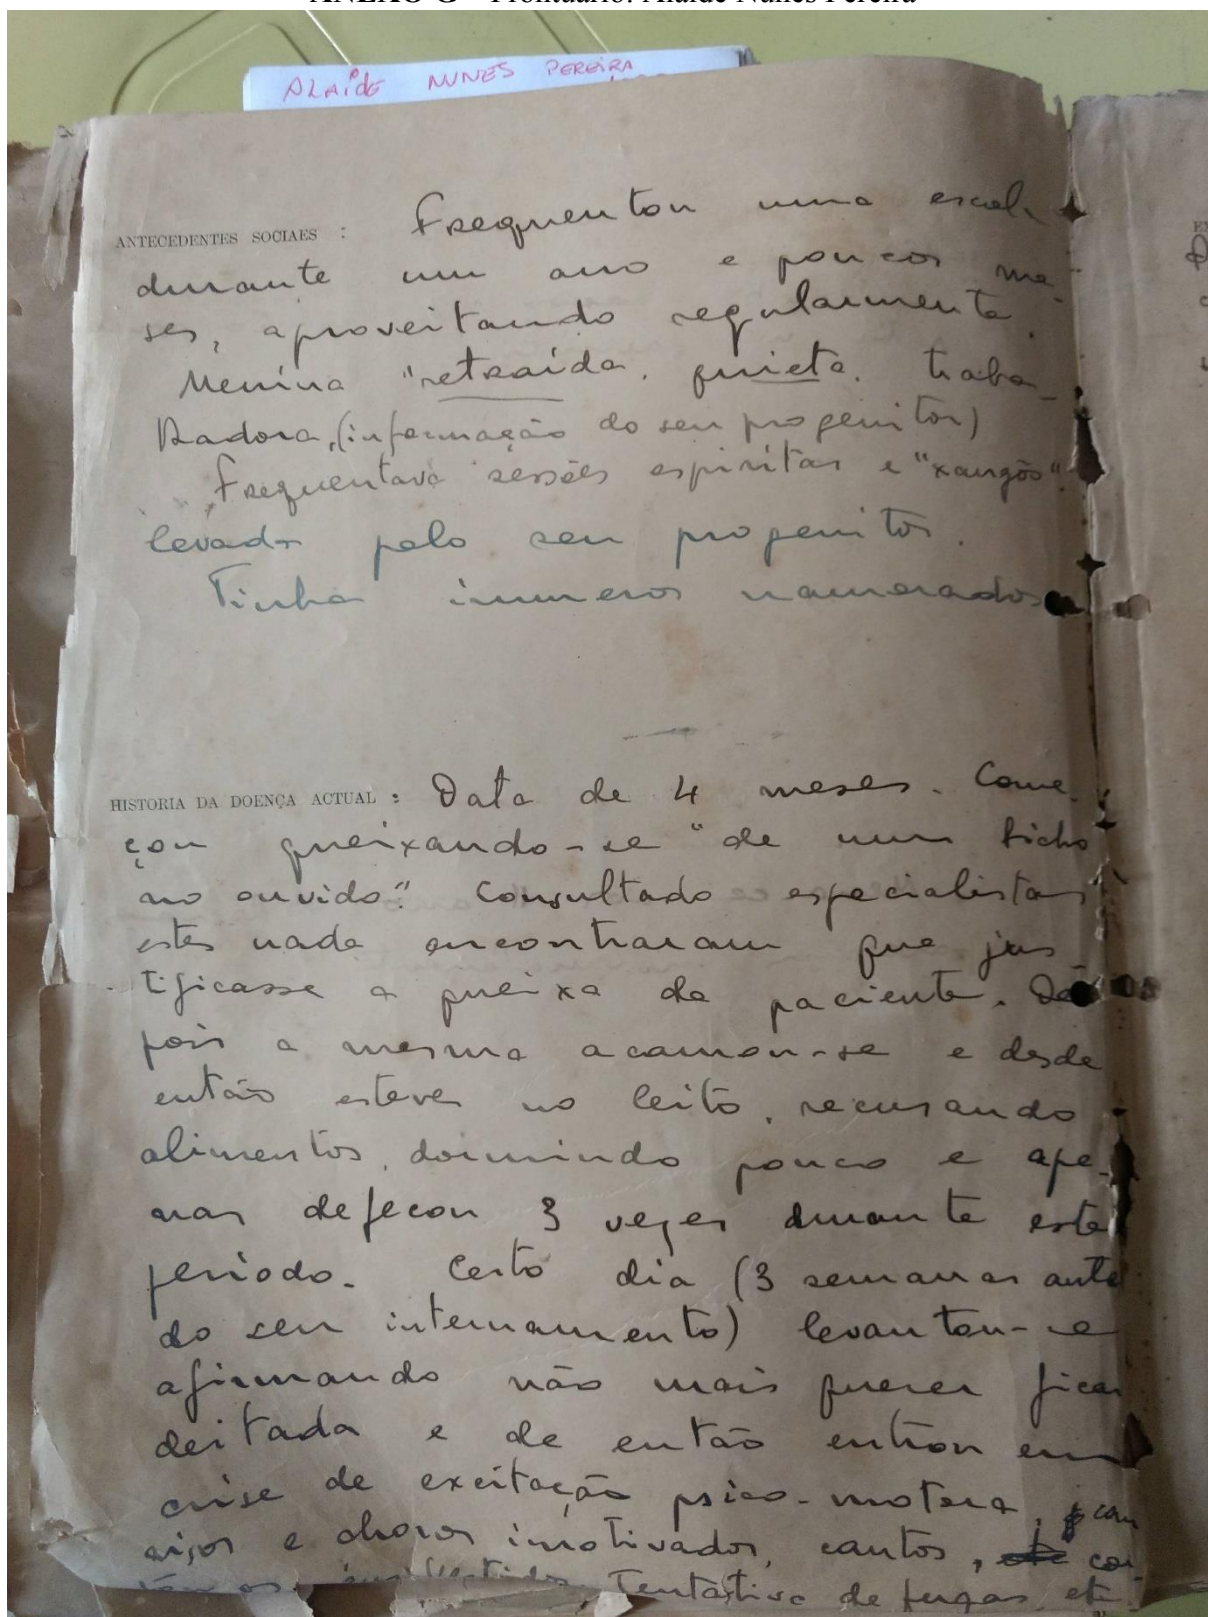 ANEXO G – Prontuário: Alaíde Nunes Pereira
ALAíDE NUNES PEREIRA
ANTECEDENTES SOCIAES : Frequentou uma escola
durante um ano e poucos me-
ses, aproveitando regularmente.
Menina "retraída, quieta, traba-
lhadora, (informação do seu progenitor)
Frequentava sessões espiritas e "xangôs"
levada pelo seu progenitor.
Tinha inumeros namorados
HISTORIA DA DOENÇA ACTUAL : Data de 4 meses. Come-
çou queixando-se "de um bicho
no ouvido". Consultado especialistas
estes nada encontraram que jus
tificasse a queixa da paciente. De
pois a mesma acamou-se e desde
então esteve no leito, recusando
alimentos, dormindo pouco e ape-
nas defecou 3 vezes durante este
periodo. Certo dia (3 semanas ante
do seu internamento) levantou-se
afirmando não mais querer ficar
deitada e de então entrou em
crise de excitação psico-motora, com
risos e choros imotivados, cantos,
tentativa de fugas, etc